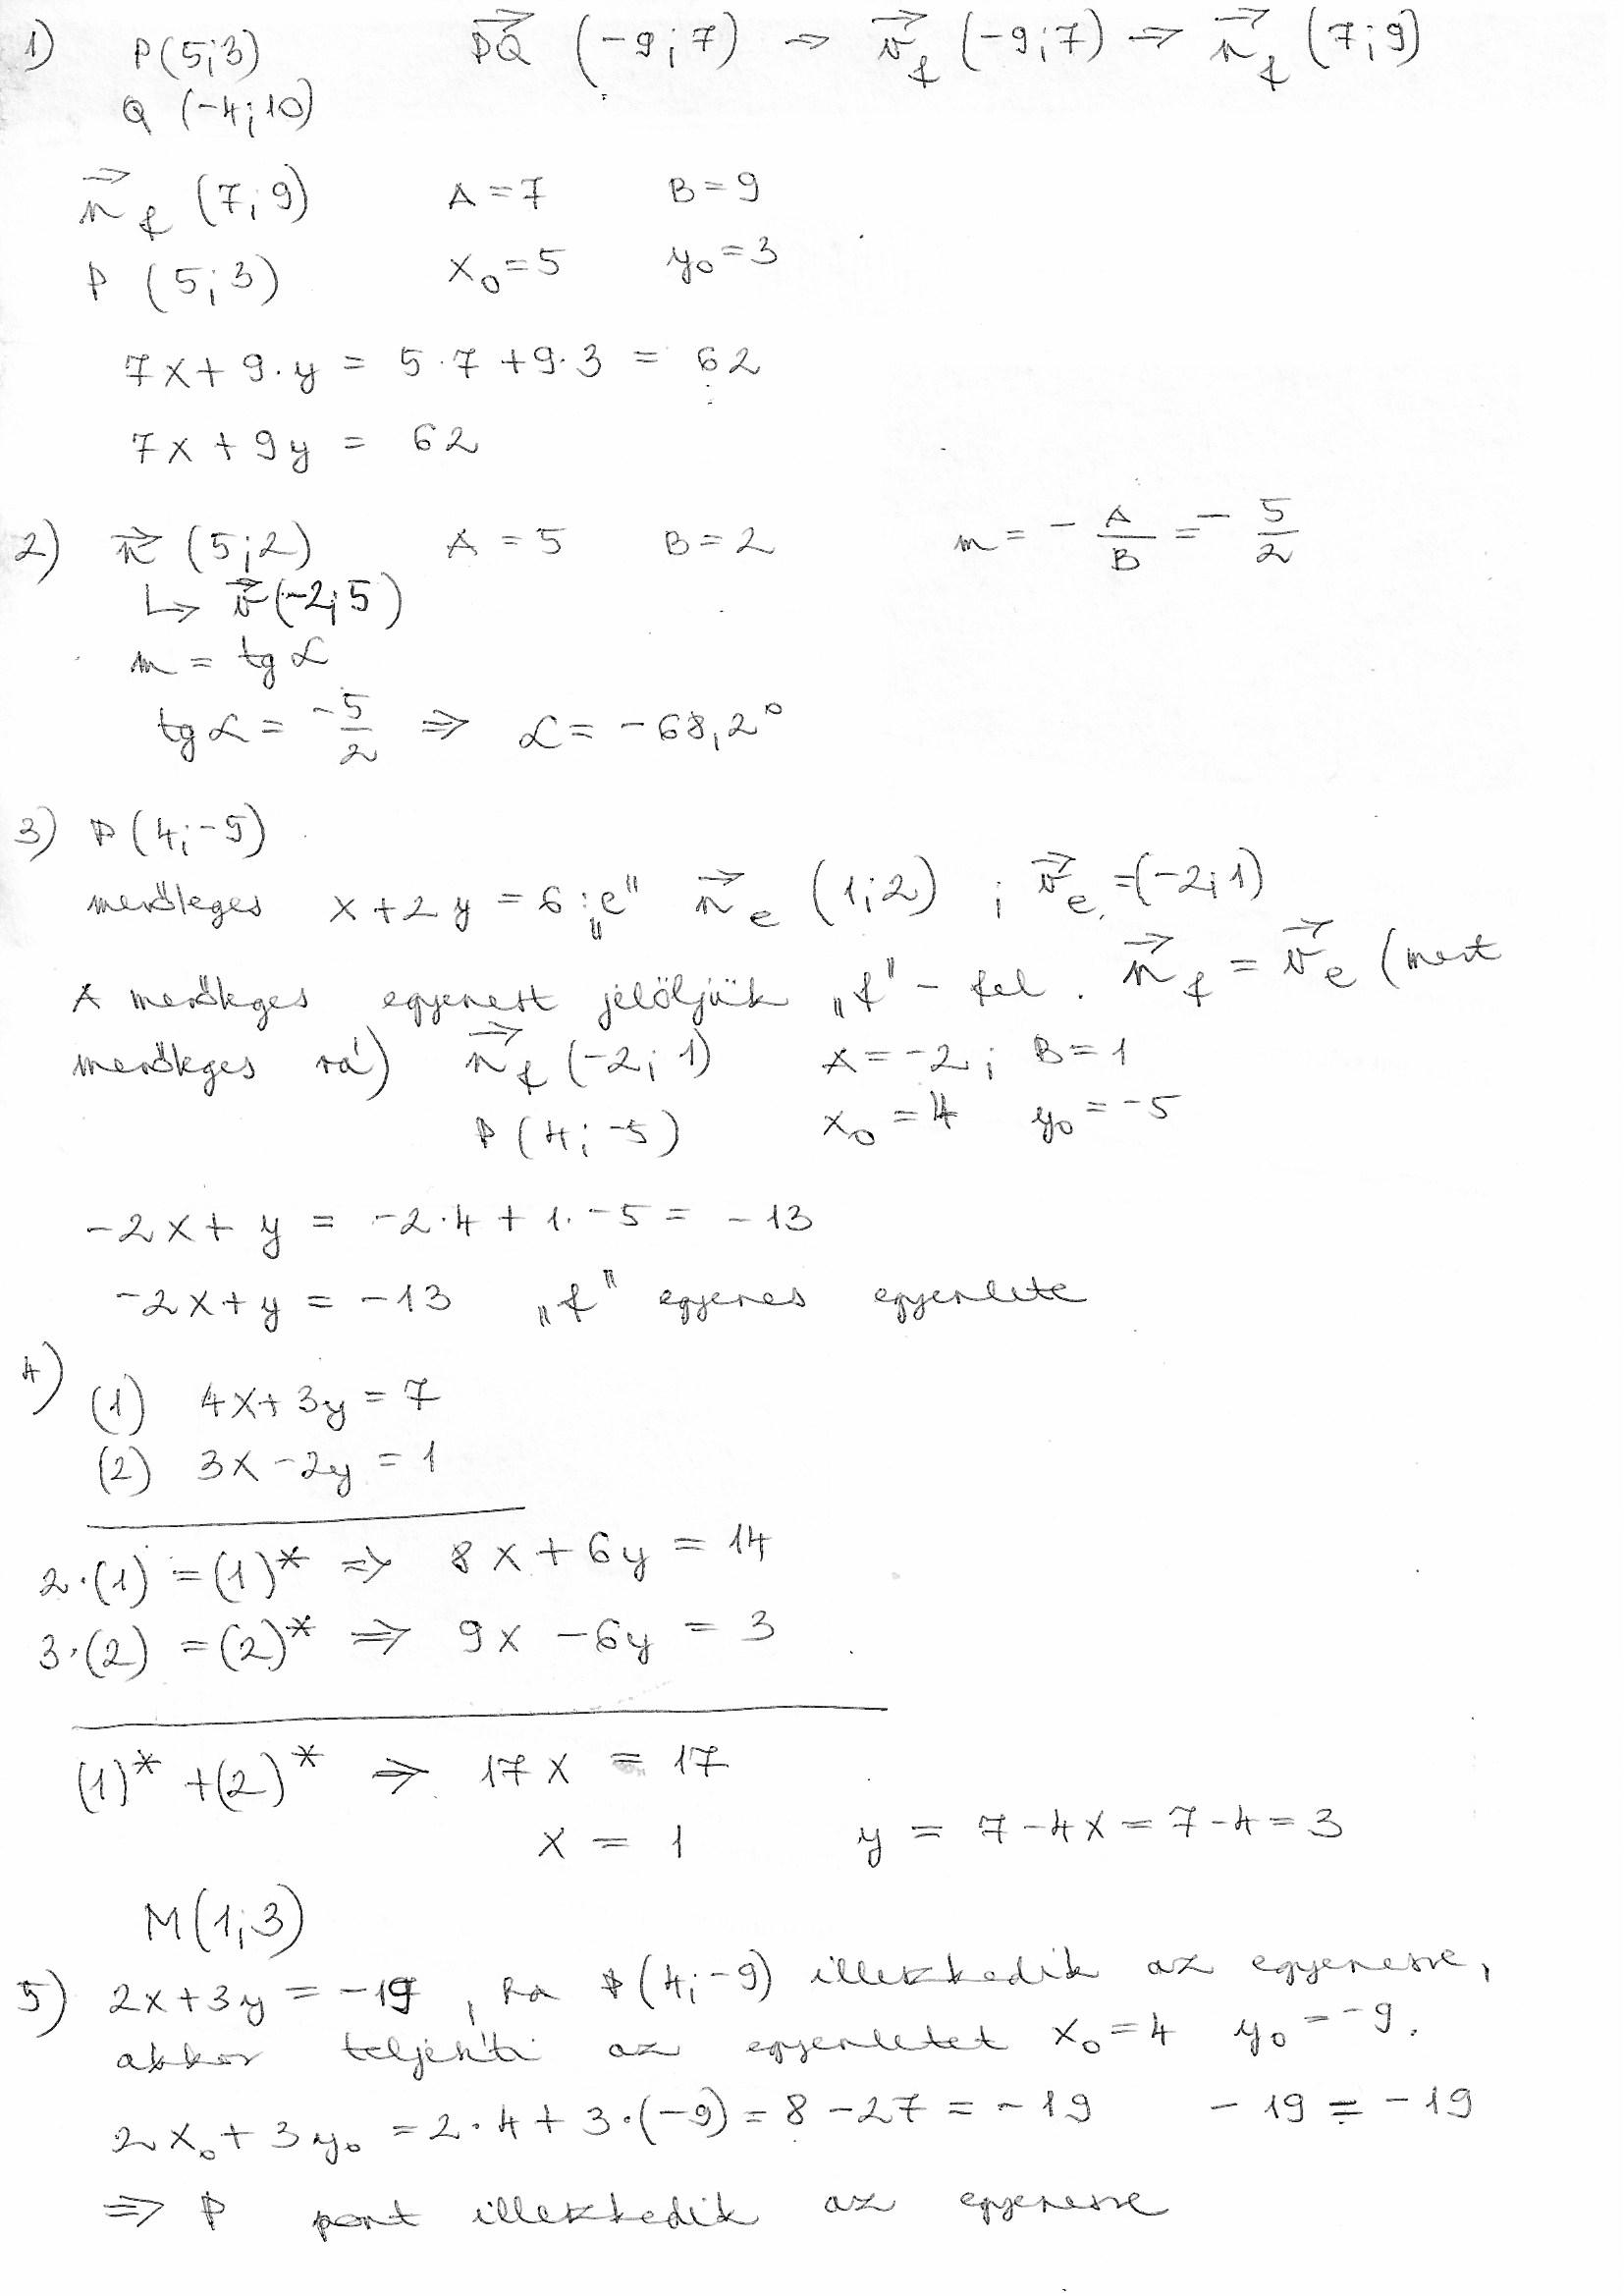 1) P(5;3) PQ⃗ (-9;7) ⇒ v⃗_f (-9;7) ⇒ n⃗_f (7;9)
Q (-4;10)
n⃗_f (7;9) A=7 B=9
P (5;3) x₀=5 y₀=3
7x+9·y = 5·7+9·3 = 62
7x+9y = 62
2) n⃗ (5;2) A=5 B=2 m = -A/B = -5/2
↳ v⃗(-2;5)
m = tg α
tg α = -5/2 ⇒ α = -68,2°
3) P(4;-5)
merőleges x+2y = 6 : „e" n⃗_e (1;2) ; v⃗_e = (-2;1)
A merőleges egyenest jelöljük „f" - fel. n⃗_f = v⃗_e (mert
merőleges rá) n⃗_f (-2;1) A=-2; B=1
P(4;-5) x₀=4 y₀=-5
-2x+y = -2·4+1·-5 = -13
-2x+y = -13 „f" egyenes egyenlete
4)
(1) 4x+3y=7
(2) 3x-2y=1
2·(1) = (1)* ⇒ 8x+6y = 14
3·(2) = (2)* ⇒ 9x-6y = 3
(1)*+(2)* ⇒ 17x = 17
x = 1 y = 7-4x = 7-4 = 3
M(1;3)
5) 2x+3y = -19, ha P(4;-9) illeszkedik az egyenesre,
akkor teljesíti az egyenletet x₀=4 y₀=-9.
2x₀+3y₀ = 2·4+3·(-9) = 8-27 = -19 -19 = -19
⇒ P pont illeszkedik az egyenesre